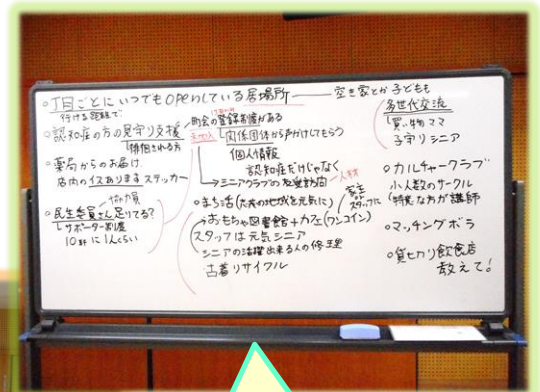 ○丁目ごとにいつでもopenしている居場所 ── 空き家とか 子どもも
行ける距離で
多世代交流
買い物ママ
子守りシニア
○認知症の方の見守り支援
徘徊される方
町会の登録制度がある
関係団体から声がけしてもらう
個人情報
認知症だけじゃなく
→シニアクラブの友愛訪問 人材
○薬局からのお届け
店内のイスありますステッカー
協力員
○民生委員さん足りてる?
サポーター制度
10軒に1人くらい
○まち活(元気の地域を元気に)
→おもちゃ図書館+カフェ(ワンコイン)
スタッフは元気シニア
シニアの活躍出来る人の修理
古着リサイクル
家主
スタッフに
○カルチャークラブ
小人数のサークル
(特意な方が講師
○マッチングボラ
○貸切り飲食店
教えて!